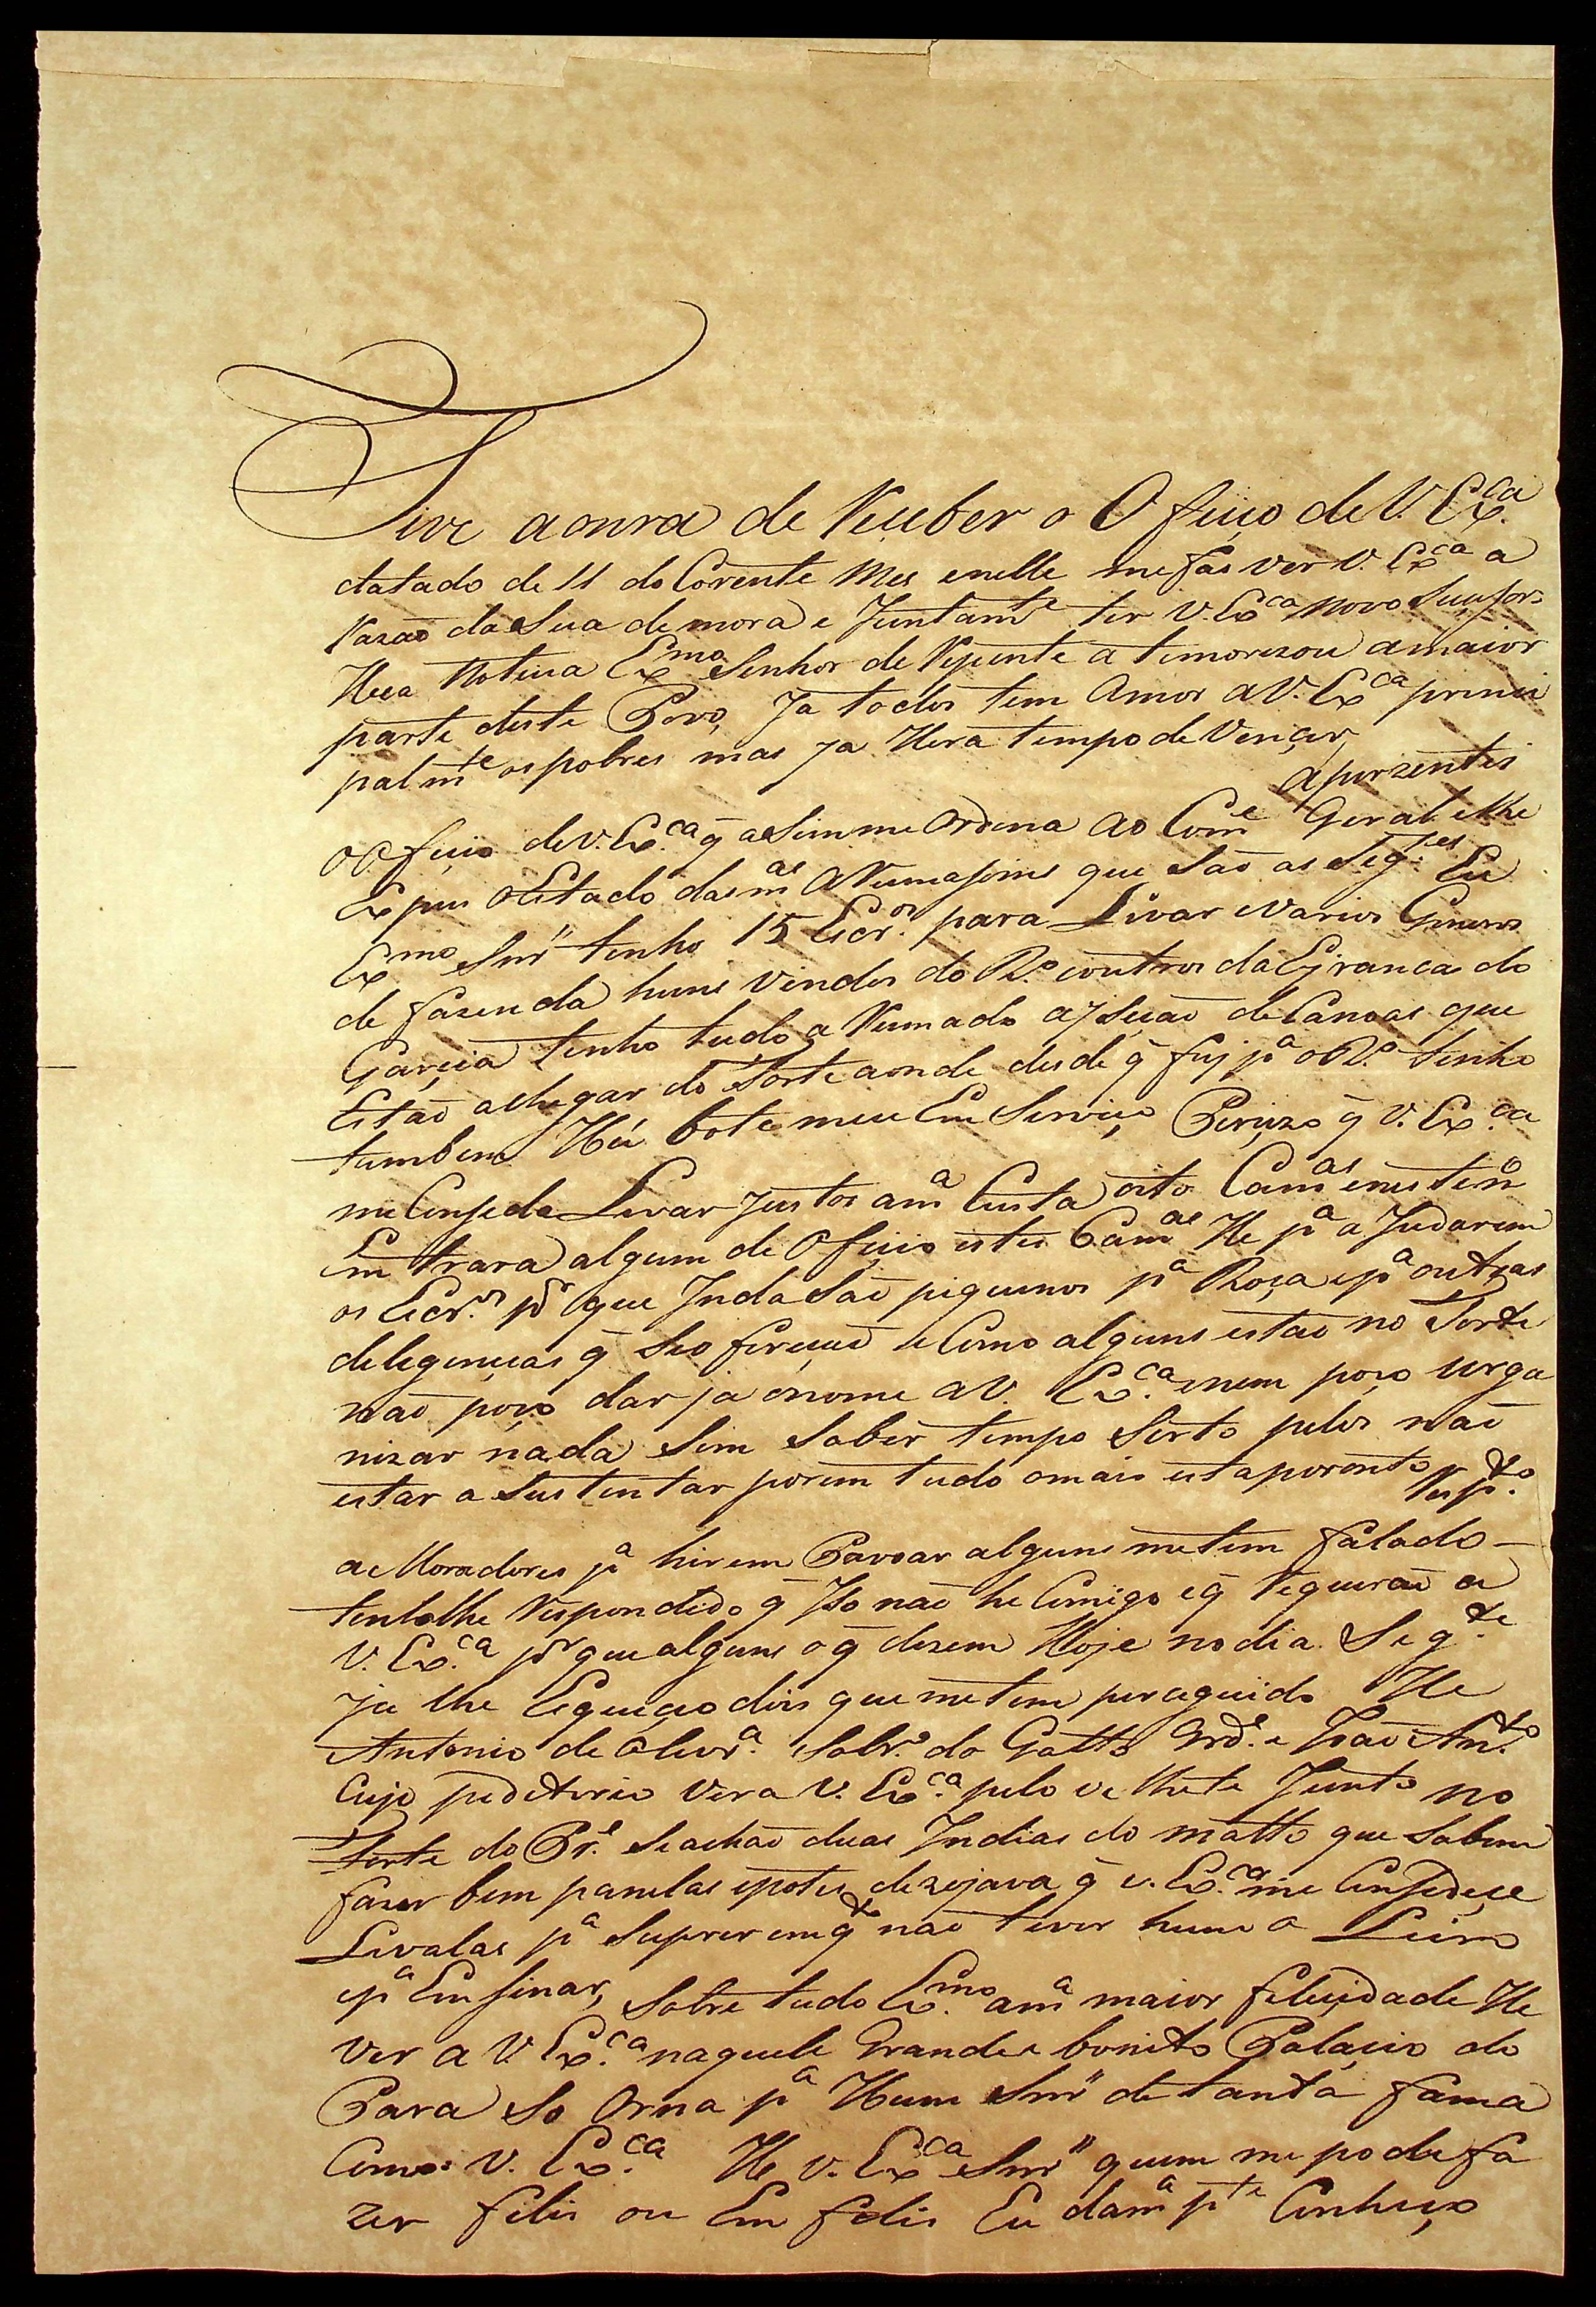 Tive aonra de Reuber o Ofiçio de V. Ex.ca
datado de 11 do Corente Mes enelle me fas ver V. Exca a
Razaõ da Sua demora e Juntamte ter V. Exca novo Suçesor
Heça Notiçia Exmo Senhor de Repente atimorizou amaior
parte deste Povo, Ja todos tem Amor aV. Exca prinçi
palmte os pobres mas ja Hera tempo de Vençer,
aperzentei
o Ofiçio de V. Ex.ca q̃ aSim me Ordena ao Come Geral elhe
Expus oEstado das mas ARumasois que Saõ as Seg.tes Eu
Exmo Snr" tenho 15 Escr.os para Livar evarios Generos
de fazenda huns vindos do R.o eoutros da Esranca do
Garçia tenho tudo aRumado a exseçaõ de Canoas que
Estaõ achegar do Forte aonde desde q̃ fuj pa o R.o tenho
tambem Hũ bote meu Em Serviço Perçizo q̃ V. Ex.ca
me Conseda Levar Justos ama Custa oito Camas enestes
Entrara algum de Ofiçio estes Camas He pa aJudarem
os Escr.os pr que Inda Saõ piquenos pa Roça epa outras
delegençias q̃ Seo fereçaõ e Como alguns estaõ no Forte
naõ poço dar ja onome aV. Ex.ca enem poço urga
nizar nada Sem Saber tempo Serto pelos naõ
estar a Sustentar porem tudo omais esta poronto Resp.to
a Moradores pa hirem Povoar alguns metem falado
tenholhe Respondido q̃ Iso naõ he Comigo eq̃ Requeiraõ a
V. Ex.ca pr que alguns oq̃ dizem Hoje nodia Seg.te
ja lhe Esqueçe dois que metem perceguido He
Antonio de Olivr.a Sobr.o do Gatto Grd.e e Joaõ Ant.o
Cujo peditorio vera V. Ex.ca pelo velhete Junto no
Forte do Pr.e Seachaõ duas Indias do matto que Sabem
fazer bem panelas epotes dezejava q̃ v. Ex.ca me Consedeçe
Levalas pa Suprerem qdo naõ tiver hum o Leiro
epa Ensinar, Sobre tudo Ex.mo ama maior feliçidade He
ver a V. Ex.ca naquele Grande e bonito Palaçio do
Para So Orna pa Hum Snr" de tanta fama
Como V. Ex.ca He V. Exca Snr" quem me pode fa
zer felis ou Em felis Eu dama pte Conheço